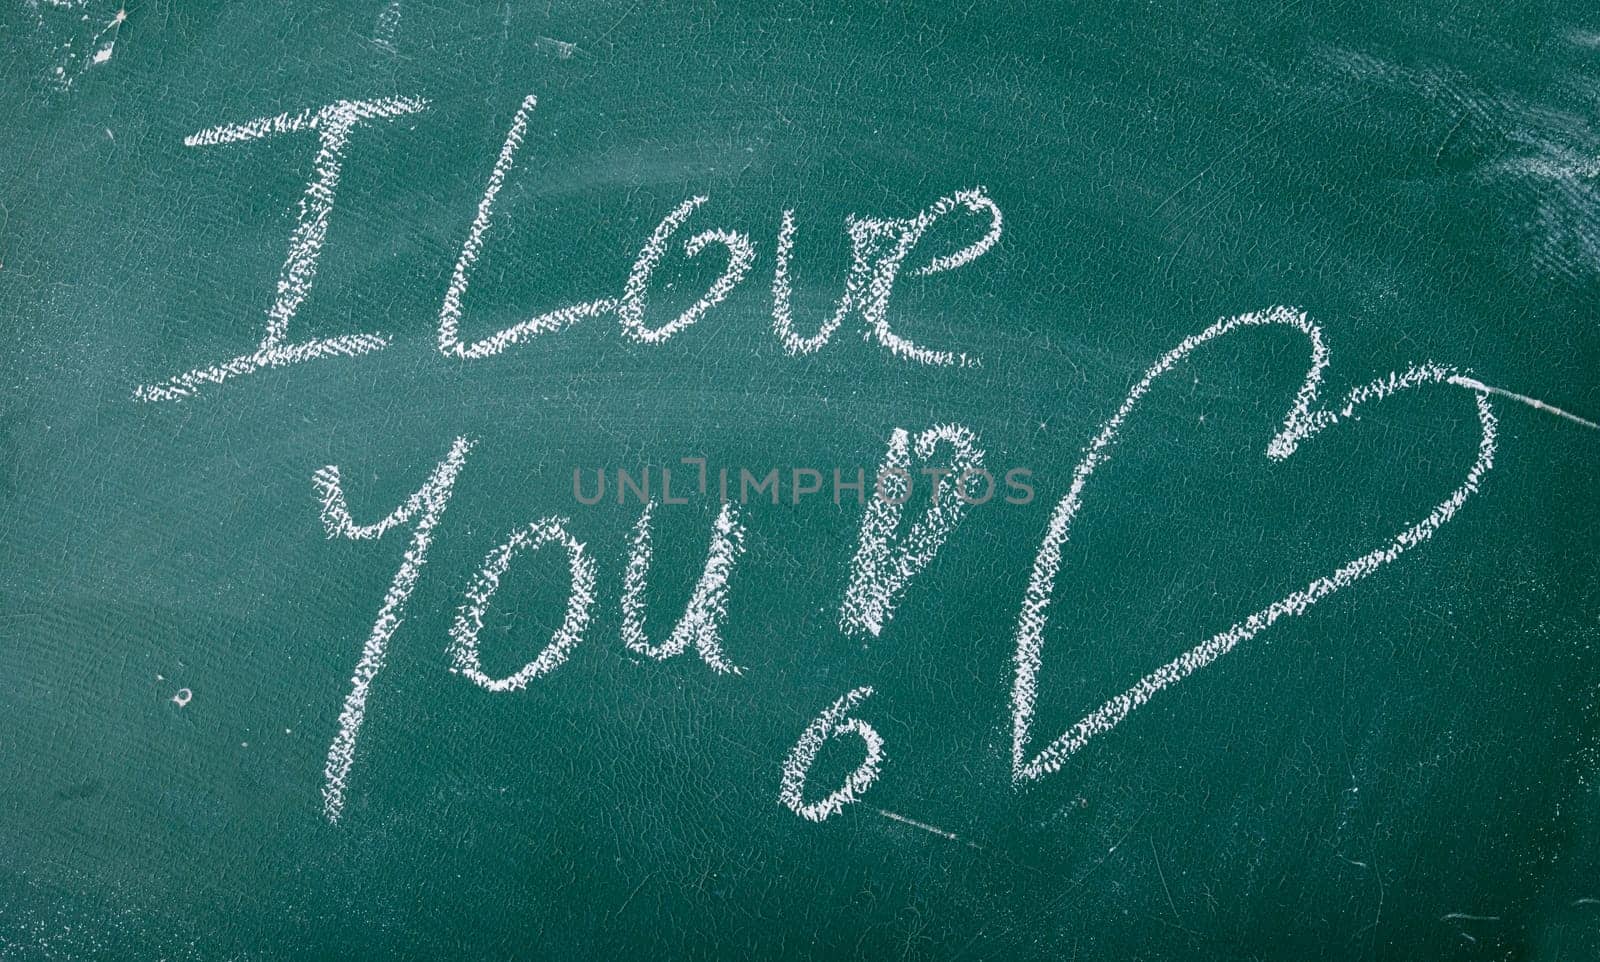 I Love
You!
UNLIMPHOTOS